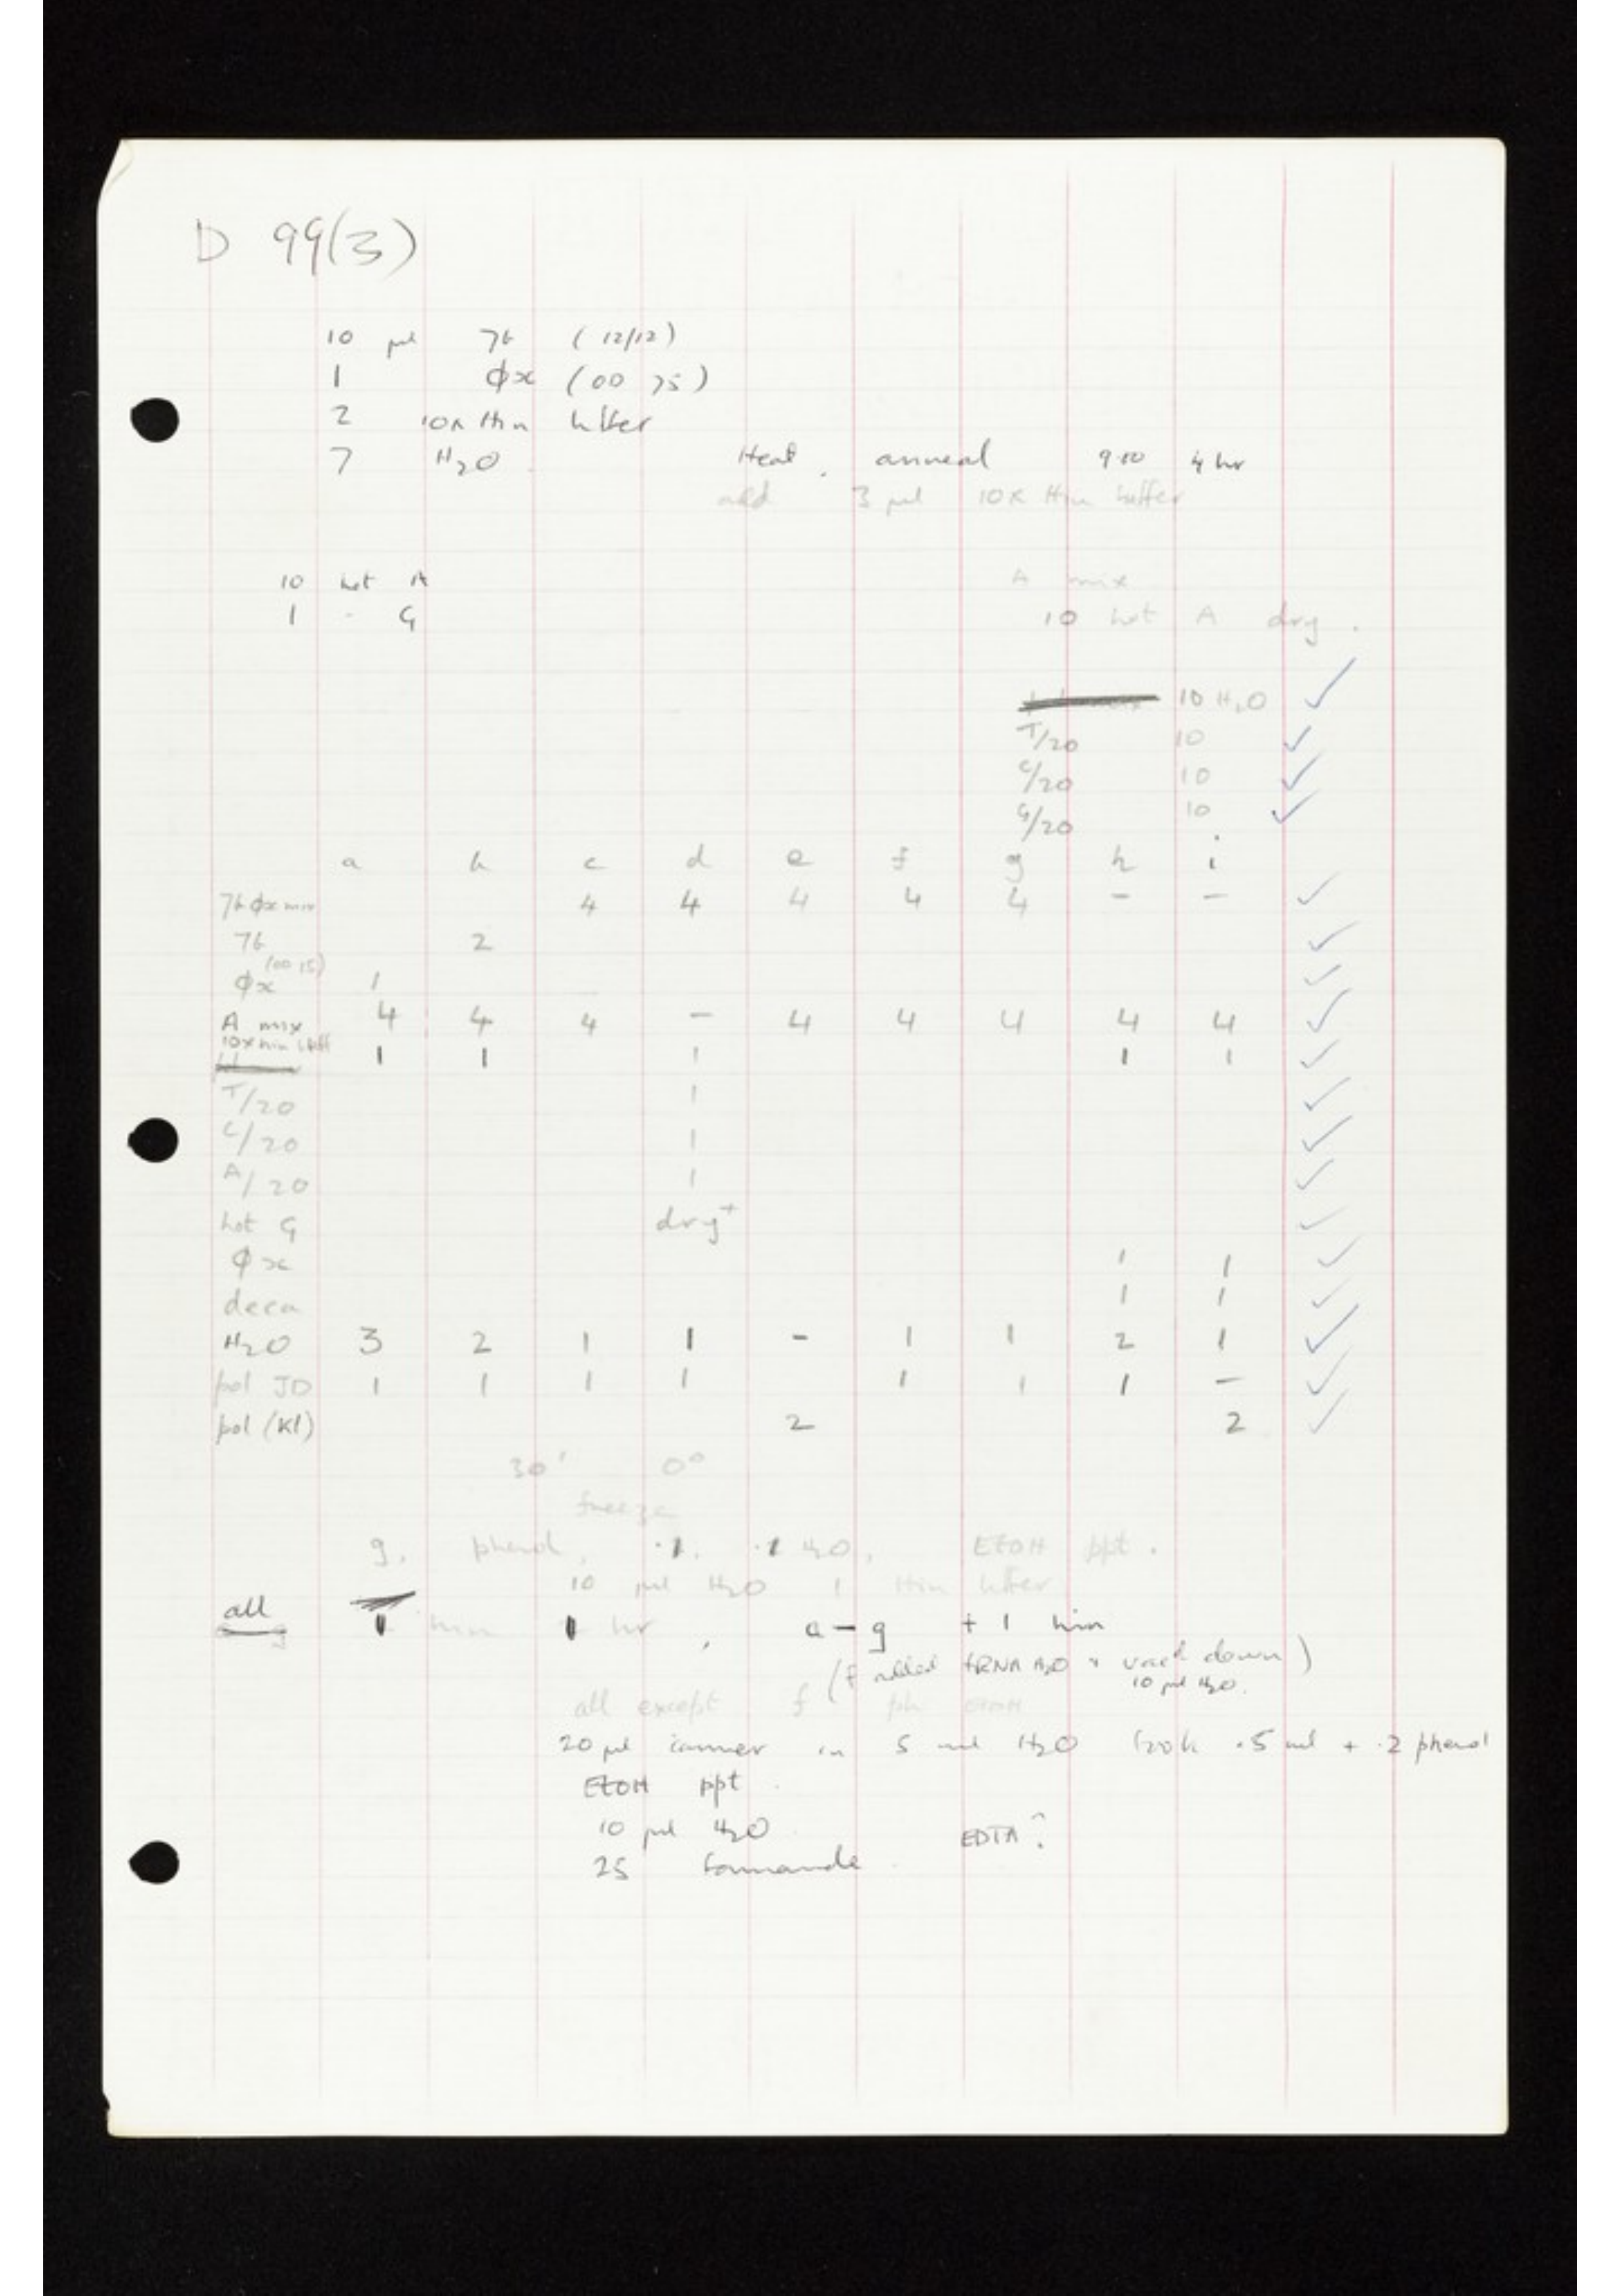 D 99(3)
10 µl 7b (12/12)
1 ϕx (00 75)
2 10x Hin buffer
7 H2O Heat, anneal 9.00 4 hr
add 3 µl 10x Hin buffer
10 hot A
1 - G
A mix
10 hot A dry.
10 H2O ✓
T/20 10 ✓
C/20 10 ✓
G/20 10 ✓
a b c d e f g h i
7b ϕx mix 4 4 4 4 4 - - ✓
7b 2 ✓
ϕx (00 75) 1 ✓
A mix 4 4 4 - 4 4 4 4 4 ✓
10x Hin buff 1 1 1 1 1 ✓
T/20 1 ✓
C/20 1 ✓
A/20 1 ✓
hot G dry+ ✓
ϕx 1 1 ✓
deca 1 1 ✓
H2O 3 2 1 1 - 1 1 2 1 ✓
pol JD 1 1 1 1 1 1 1 - ✓
pol (Kl) 2 2 ✓
30' 0°
freeze
g. phenol, .1. .1 H2O, EtOH ppt.
10 µl H2O 1 Hin buffer
all 1 Hin 1 hr, a - g + 1 Hin
(f added tRNA H2O + vac'd down)
10 µl H2O.
all except f ph EtOH
20 µl carrier in 5 ml H2O took .5 ml + .2 phenol
EtOH ppt.
10 µl H2O EDTA?
25 formamide